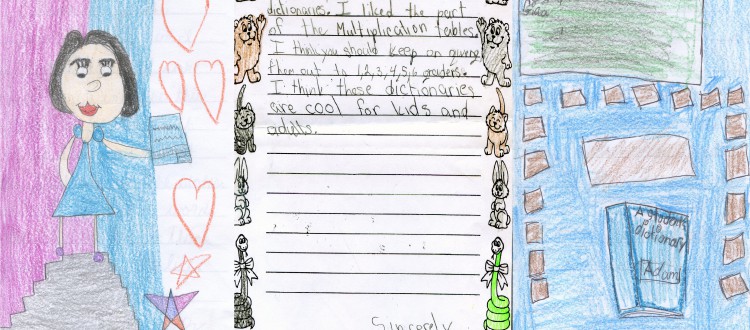 dictionaries. I liked the part
of the Multiplication tables.
I think you should keep on giving
them out to 1,2,3,4,5,6 graders.
I think those dictionaries
are cool for kids and
adults.
Sincerely
A student's
dictionary
Adam